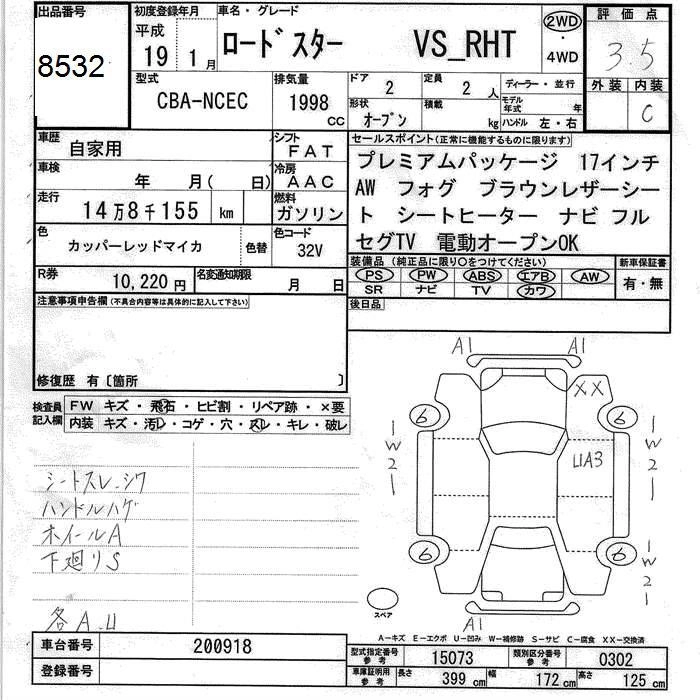 出品番号
8532
初度登録年月
平成
19 1月
車名・グレード
ロードスター VS_RHT
2WD
・
4WD
評価点
3.5
外装 内装
C
型式
CBA-NCEC
排気量
1998
CC
ドア
2
定員
2 人
ディーラー・並行
形状
オープン
積載
kg
モデル年式 年
ハンドル 左・右
車歴
自家用
シフト
FAT
車検
年 月( 日)
冷房
AAC
走行
14万8千155 km
燃料
ガソリン
色
カッパーレッドマイカ
色替
色コード
32V
R券
10,220円
名変通知期限
月 日
セールスポイント(正常に機能するものに限ります)
プレミアムパッケージ 17インチ
AW フォグ ブラウンレザーシー
ト シートヒーター ナビ フル
セグTV 電動オープンOK
装備品 (純正品に限り○をつけてください)
PS PW ABS エアB AW
SR ナビ TV カワ
新車保証書
有・無
後日品
注意事項申告欄(不具合内容等は具体的に記入して下さい)
修復歴 有〔箇所 〕
検査員
記入欄
FW キズ・飛石・ヒビ割・リペア跡・×要
内装 キズ・汚レ・コゲ・穴・スレ・キレ・破レ
シートスレ.シワ
ハンドルハゲ
ホイールA
下廻りS
各A.U
A1
A1
XX
6
6
W2
W2
U1A3
6
6
W2
A1
スペア
A−キズ E−エクボ U−凹み W−補修跡 S−サビ C−腐食 XX−交換済
車台番号
200918
登録番号
型式指定番号
参考
15073
類別区分番号
参考
0302
車庫証明用
参考
長さ
399 cm
幅
172 cm
高さ
125 cm